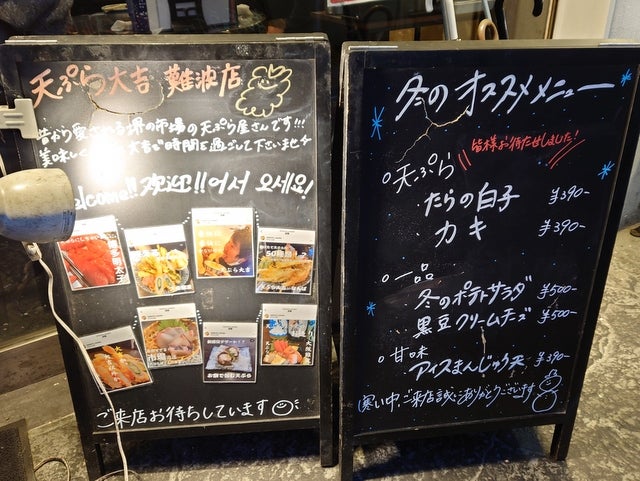 天ぷら大吉 難波店
昔から愛される堺の市場の天ぷら屋さんです!!!
美味しく 大吉で時間を過ごして下さいませ
elcome!! 欢迎!! 어서 오세요!
50種類
市場
ご来店お待ちしています
冬のオススメメニュー
皆様お待たせしました!
天ぷら
たらの白子 ¥390-
カキ ¥390-
一品
冬のポテトサラダ ¥500-
黒豆クリームチーズ ¥500-
甘味
アイスまんじゅう天 ¥390-
寒い中、ご来店誠にありがとうございます